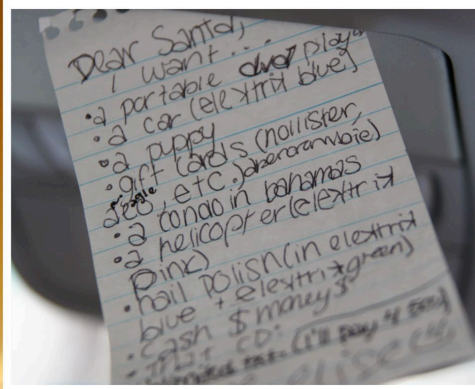 Dear Santa,
I want...
• a portable dvd play
• a car (elextrix blue)
• a puppy
• gift cards (hollister,
aeo, etc.)
eagle
• a condo in bahamas
• a helicopter (elextrix
pink)
• nail polish (in elextrix
blue + elextrix green)
• cash $money$
CD
(i'll pay 4